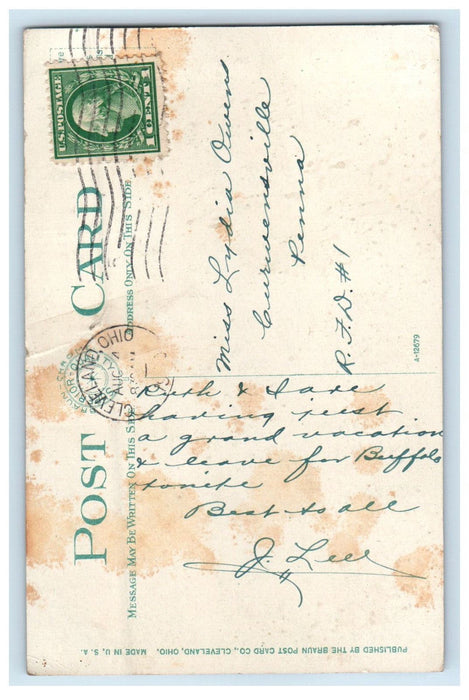 POST CARD
MESSAGE MAY BE WRITTEN ON THIS SIDE
ADDRESS ONLY ON THIS SIDE
U.S. POSTAGE
1 CENT 1
CLEVELAND, OHIO
AUG
Ruth & I are
having just
a grand vacation
& leave for Buffalo
tonite
Best to all
J. Lee
Miss Lydia Owens
Curwensville
Penna
R.F.D. #1
A-12679
PUBLISHED BY THE BRAUN POST CARD CO., CLEVELAND, OHIO. MADE IN U. S. A.